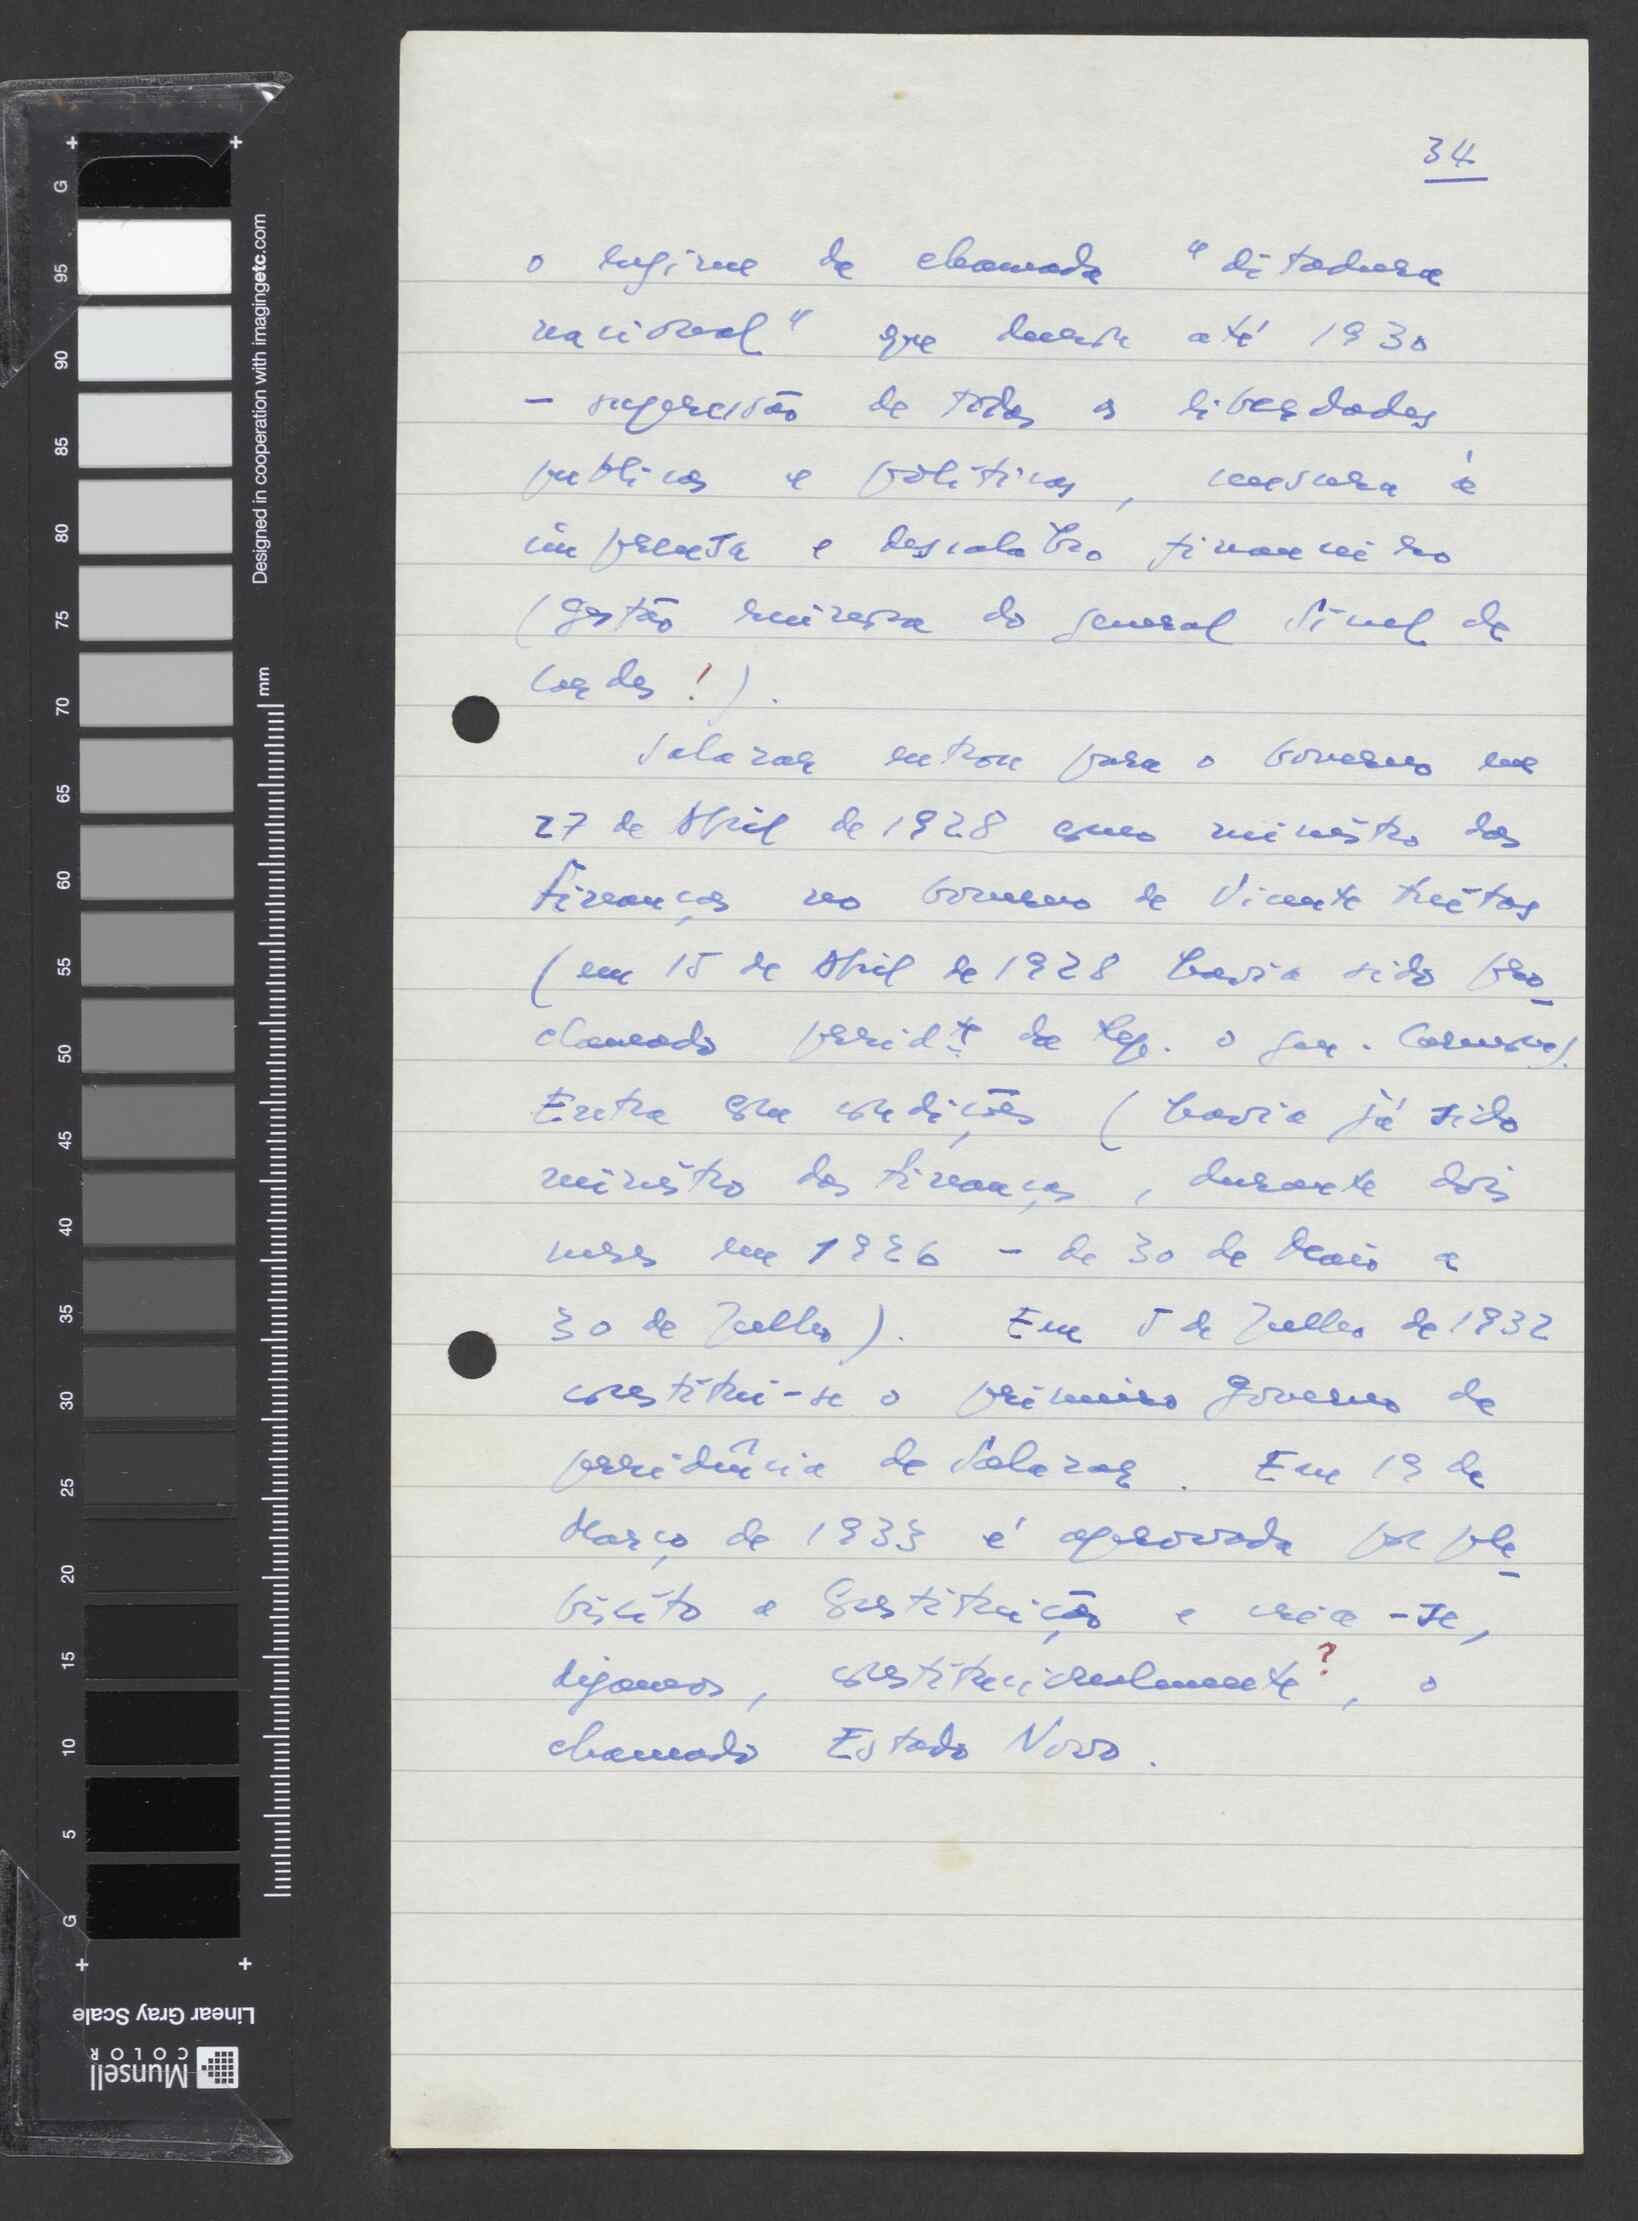 34
o regime da chamada "ditadura
nacional" que durou até 1930
- supressão de todas as liberdades
publicas e políticas, censura à
imprensa e descalabro financeiro
(gestão do general Sinel de
Cordes!).
Salazar entrou para o Governo em
27 de Abril de 1928 como ministro das
Finanças no Governo de Vicente Freitas
(em 15 de Abril de 1928 havia sido pro_
clamado presid.te da Rep. o gen. Carmona).
Entra com condições (havia já sido
ministro das Finanças, durante dois
meses em 1926 - de 30 de Maio a
30 de Julho). Em 5 de Julho de 1932
constitui-se o primeiro governo da
presidência de Salazar. Em 19 de
Março de 1933 é aprovada por ple_
biscito a Constituição e cria-se,
digamos, constitucionalmente?, o
chamado Estado Novo.
G
95
90
85
80
75
70
65
60
55
50
45
40
35
30
25
20
15
10
5
G
mm
Designed in cooperation with imagingetc.com
Linear Gray Scale
Munsell
COLOR